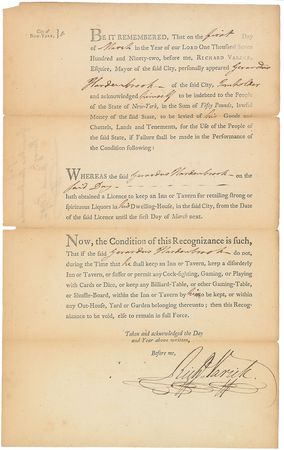 City of New-York, } ss.
BE IT REMEMBERED, That on the first Day
of March in the Year of our LORD One Thousand Seven
Hundred and Ninety-two, before me, RICHARD VARICK,
Esquire, Mayor of the said City, personally appeared Gerardus
Hardenbrook of the said City, Innholder
and acknowledged himself to be indebted to the People
of the State of New-York, in the Sum of Fifty Pounds, lawful
Money of the said State, to be levied of his Goods and
Chattels, Lands and Tenements, for the Use of the People of
the said State, if Failure shall be made in the Performance of
the Condition following:
WHEREAS the said Gerardus Hardenbrook on the
said Day
hath obtained a Licence to keep an Inn or Tavern for retailing strong or
spirituous Liquors in his Dwelling-House, in the said City, from the Date
of the said Licence until the first Day of March next.
Now, the Condition of this Recognizance is such,
That if the said Gerardus Hardenbrook do not,
during the Time that he shall keep an Inn or Tavern, keep a disorderly
Inn or Tavern, or suffer or permit any Cock-fighting, Gaming, or Playing
with Cards or Dice, or keep any Billiard-Table, or other Gaming-Table,
or Shuffle-Board, within the Inn or Tavern by him so kept, or within
any Out-House, Yard or Garden belonging thereunto; then this Recogni-
zance to be void, else to remain in full Force.
Taken and acknowledged the Day
and Year above written,
Before me,
Richd Varick